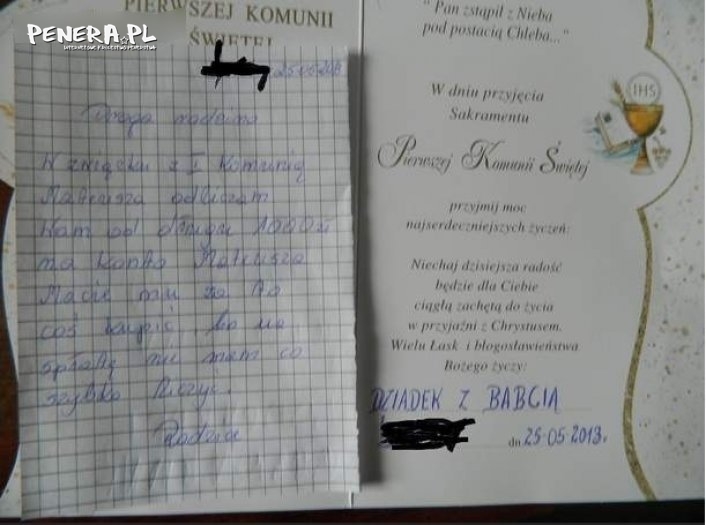 PIERWSZEJ KOMUNII
ŚWIĘTEJ
PENERA.PL
25-05-2013
Droga rodzino
W związku z I Komunią
Mateusza odliczam
Wam od długu 1000 zł
na konto Mateusza
Macie mu za to
coś kupić bo na
spłatę nie mam co
szybko liczyć.
"Pan zstąpił z Nieba
pod postacią Chleba..."
IHS
W dniu przyjęcia
Sakramentu
Pierwszej Komunii Świętej
przyjmij moc
najserdeczniejszych życzeń:
Niechaj dzisiejsza radość
będzie dla Ciebie
ciągłą zachętą do życia
w przyjaźni z Chrystusem.
Wielu Łask i błogosławieństwa
Bożego życzy:
DZIADEK Z BABCIĄ
dn 25-05-2013r